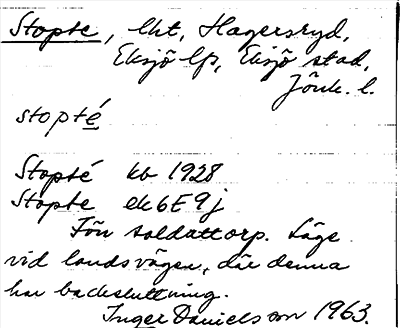 Stopte, lht, Hagersryd,
Eksjö lfs, Eksjö stad,
Jönk. l.
stopté
Stopté kb 1928
Stopte ek 6E 9j
Fön soldattorp. Läge
vid landsvägen, där denna
har backsluttning.
Inger Danielsson 1963.